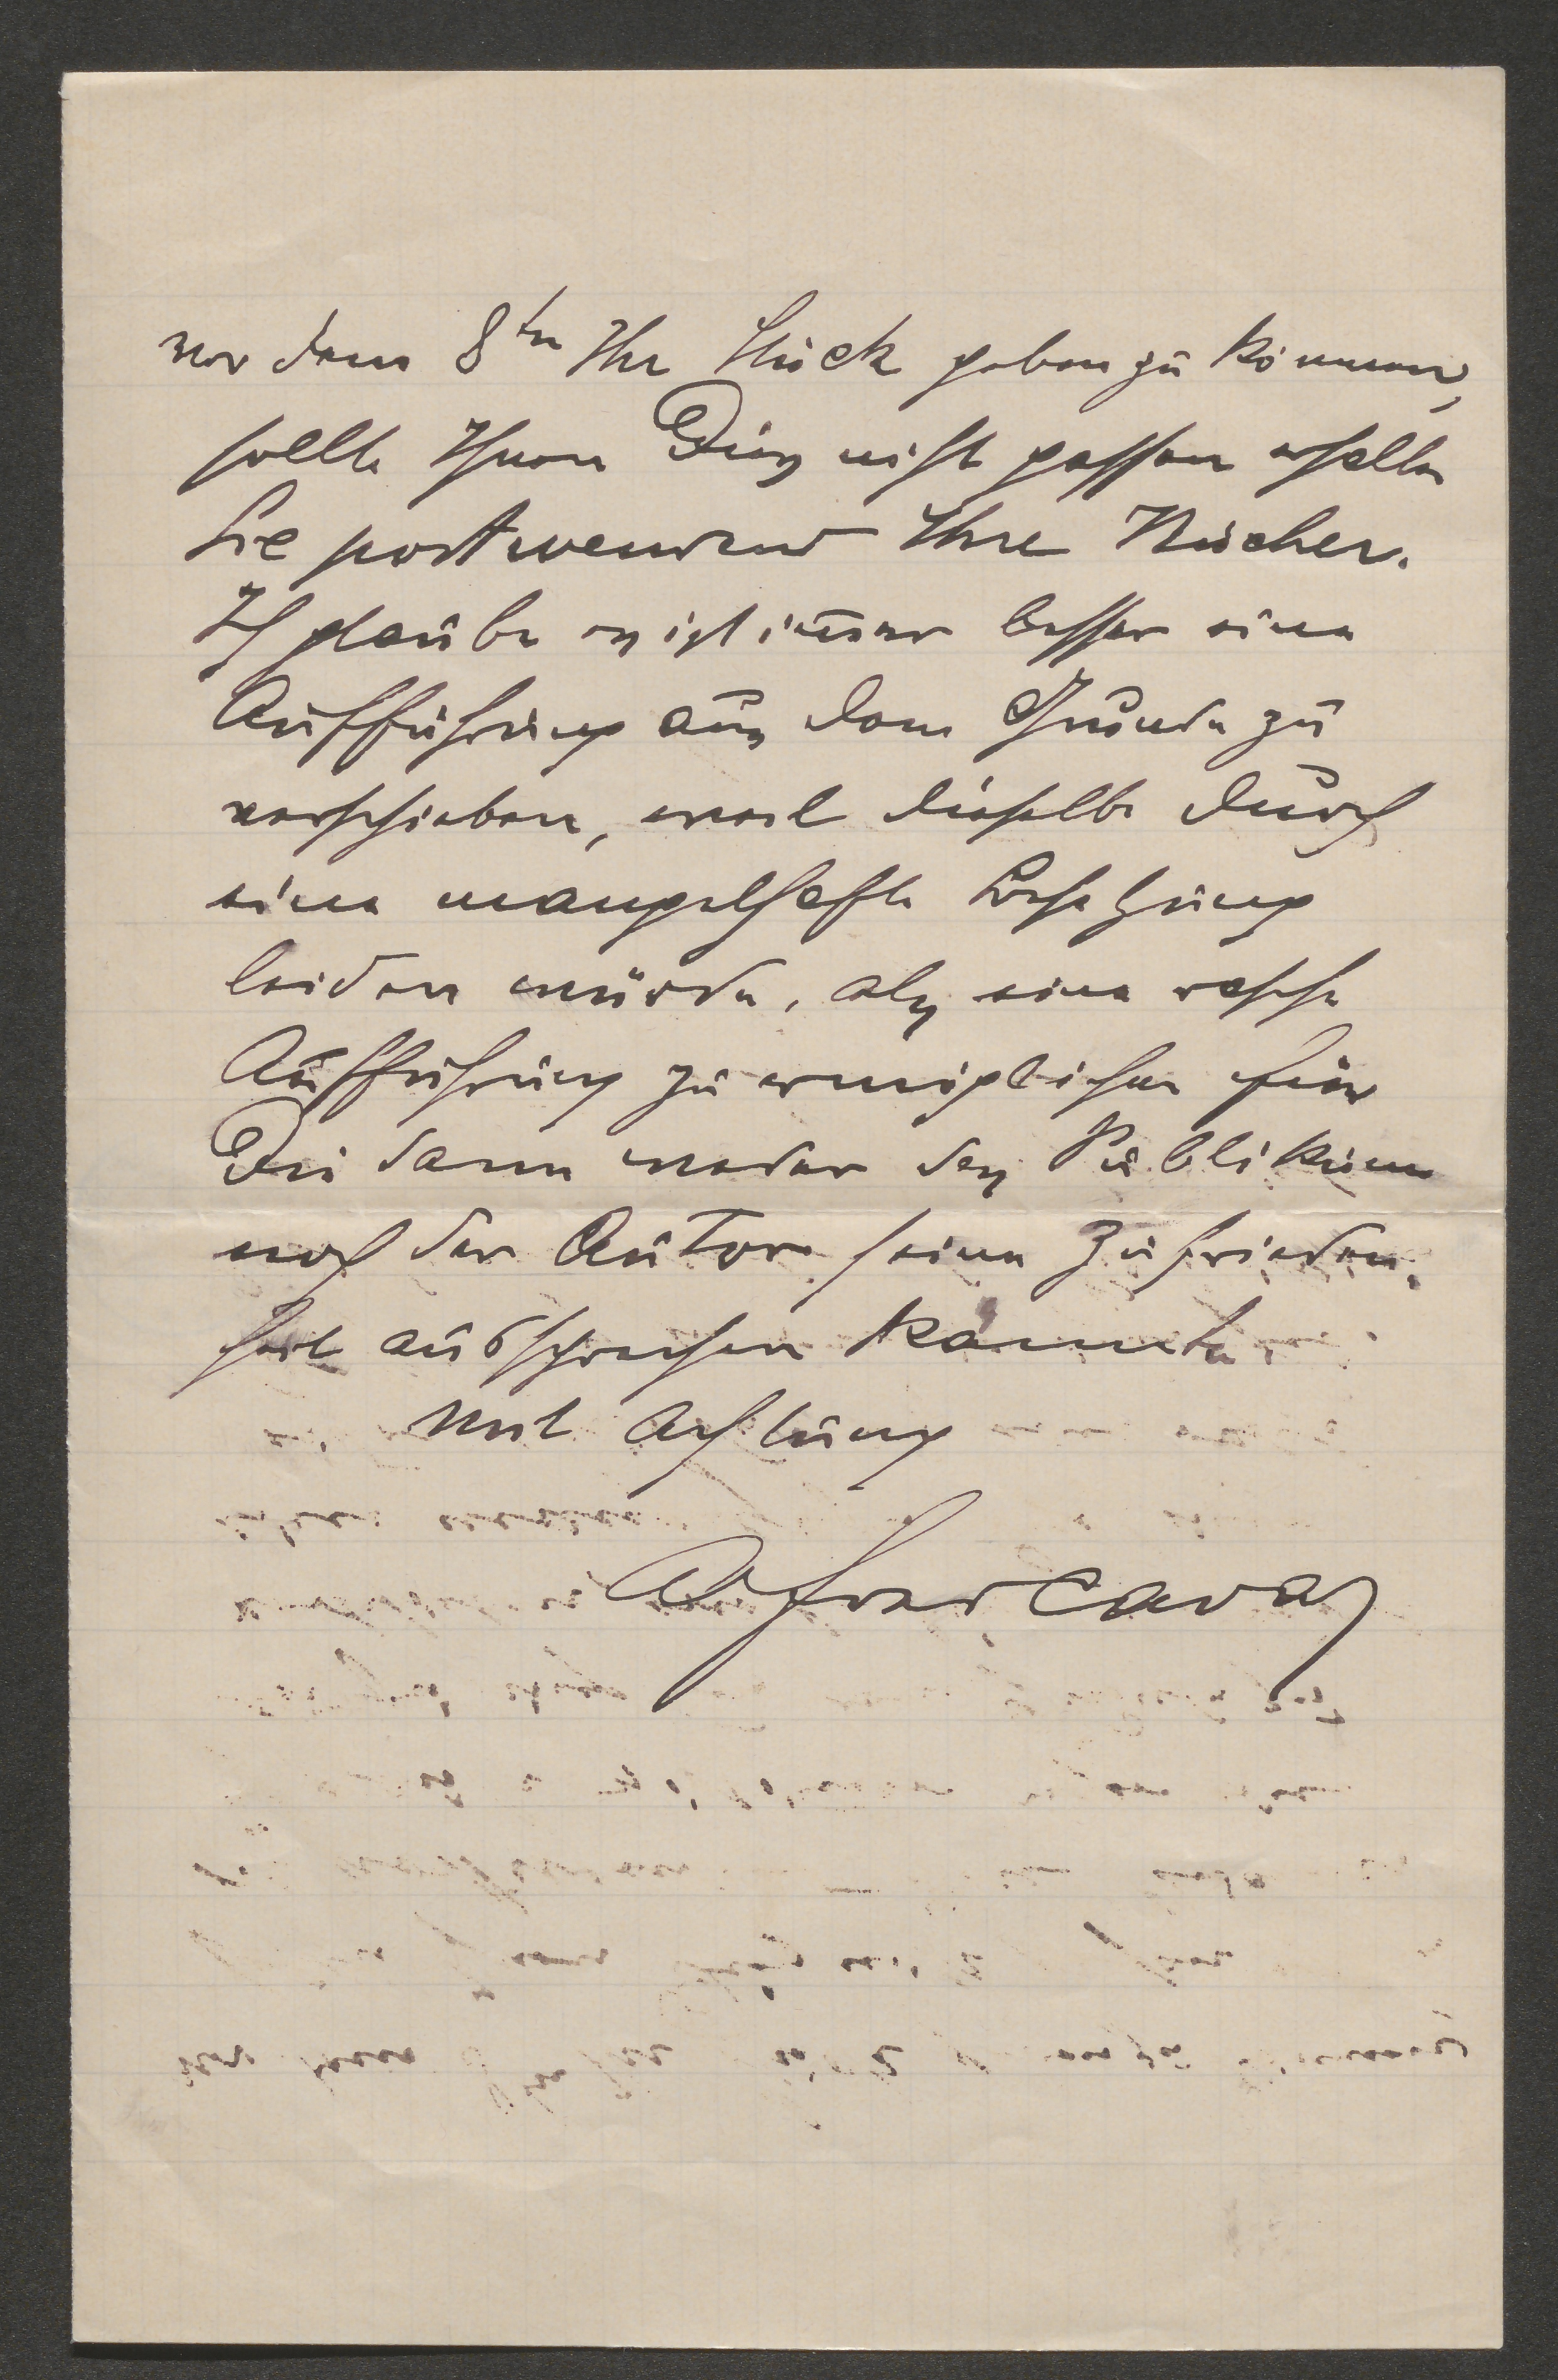 vor dem 8ten Ihr Stück geben zu können,
sollte Ihnen Dies nicht passen erhalten
Sie postwendend Ihre Bücher.
Ich glaube es ist im̅er besser eine
Aufführung aus dem Grunde zu
verschieben, weil dieselbe durch
eine mangelhafte Besetzung
leiden würde, als eine rasche
Aufführung zu ermöglichen für
Die dann weder das Publikum
noch der Autor seine Zufrieden-
heit aussprechen könnte
Mit Achtung